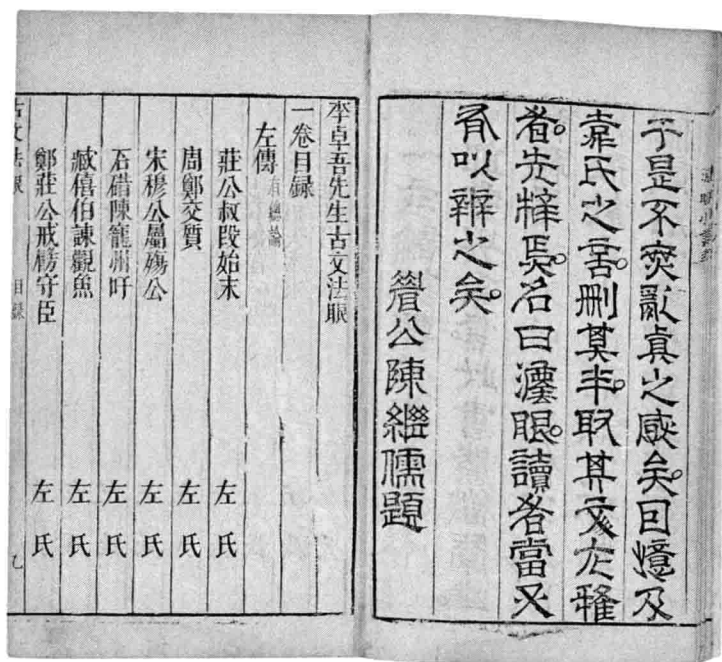 于是不亂真之感矣回憶及
氏之言刪其半取其文尤雅
者先梓焉名曰灋眼讀者當又
有以辨之矣
眉公陳繼儒題
李卓吾先生古文法眼
一卷目録
左傳 有總論
莊公叔段始末 左氏
周鄭交質 左氏
宋穆公屬殤公 左氏
石碏陳寵州吁 左氏
臧僖伯諫觀魚 左氏
鄭莊公戒飭守臣 左氏
古文法眼 目録